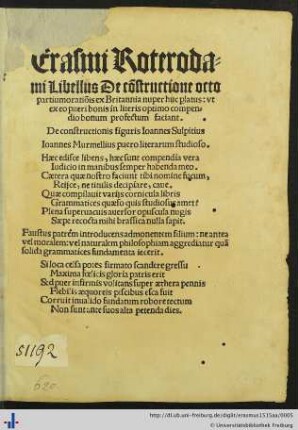 Erasmi Roteroda-
mi Libellus De cõstructione octo
partium oratiõis ex Britannia nuper huc platus: vt
ex eo pueri bonis in literis optimo compen-
dio bonum profectum faciant.
De constructionis figuris Ioannes Sulpitius
Ioannes Murmellius puero literarum studioso.
Hæc edisce libens, hæc sunt compendia vera
Iudicio in manibus semper habenda meo.
Cætera quæ nostro faciunt tibi nomine fucum,
Reijce, ne titulis decipiare, caue.
Quæ compilauit varijs cornicula libris
Grammatices quæso quis studiosus amet?
Plena superuacuis auersor opuscula nugis
Sæpe recocta mihi brassica nulla sapit.
Faustus patrem introducens admonentem filium: ne antea
vel moralem: vel naturalem philosophiam aggrediatur quã
solida grammatices fundamenta iecerit.
Si loca celsa potes firmato scandere gressu
Maxima fœlicis gloria patris erit
Sed puer infirmis volitans super æthera pennis
Flebilis æquoreis piscibus esca fuit
Corruit inualido fundatum robore tectum
Non sunt ante suos alta petenda dies.
51192
http://dl.ub.uni-freiburg.de/diglit/erasmus1515aa/0005
© Universitätsbibliothek Freiburg